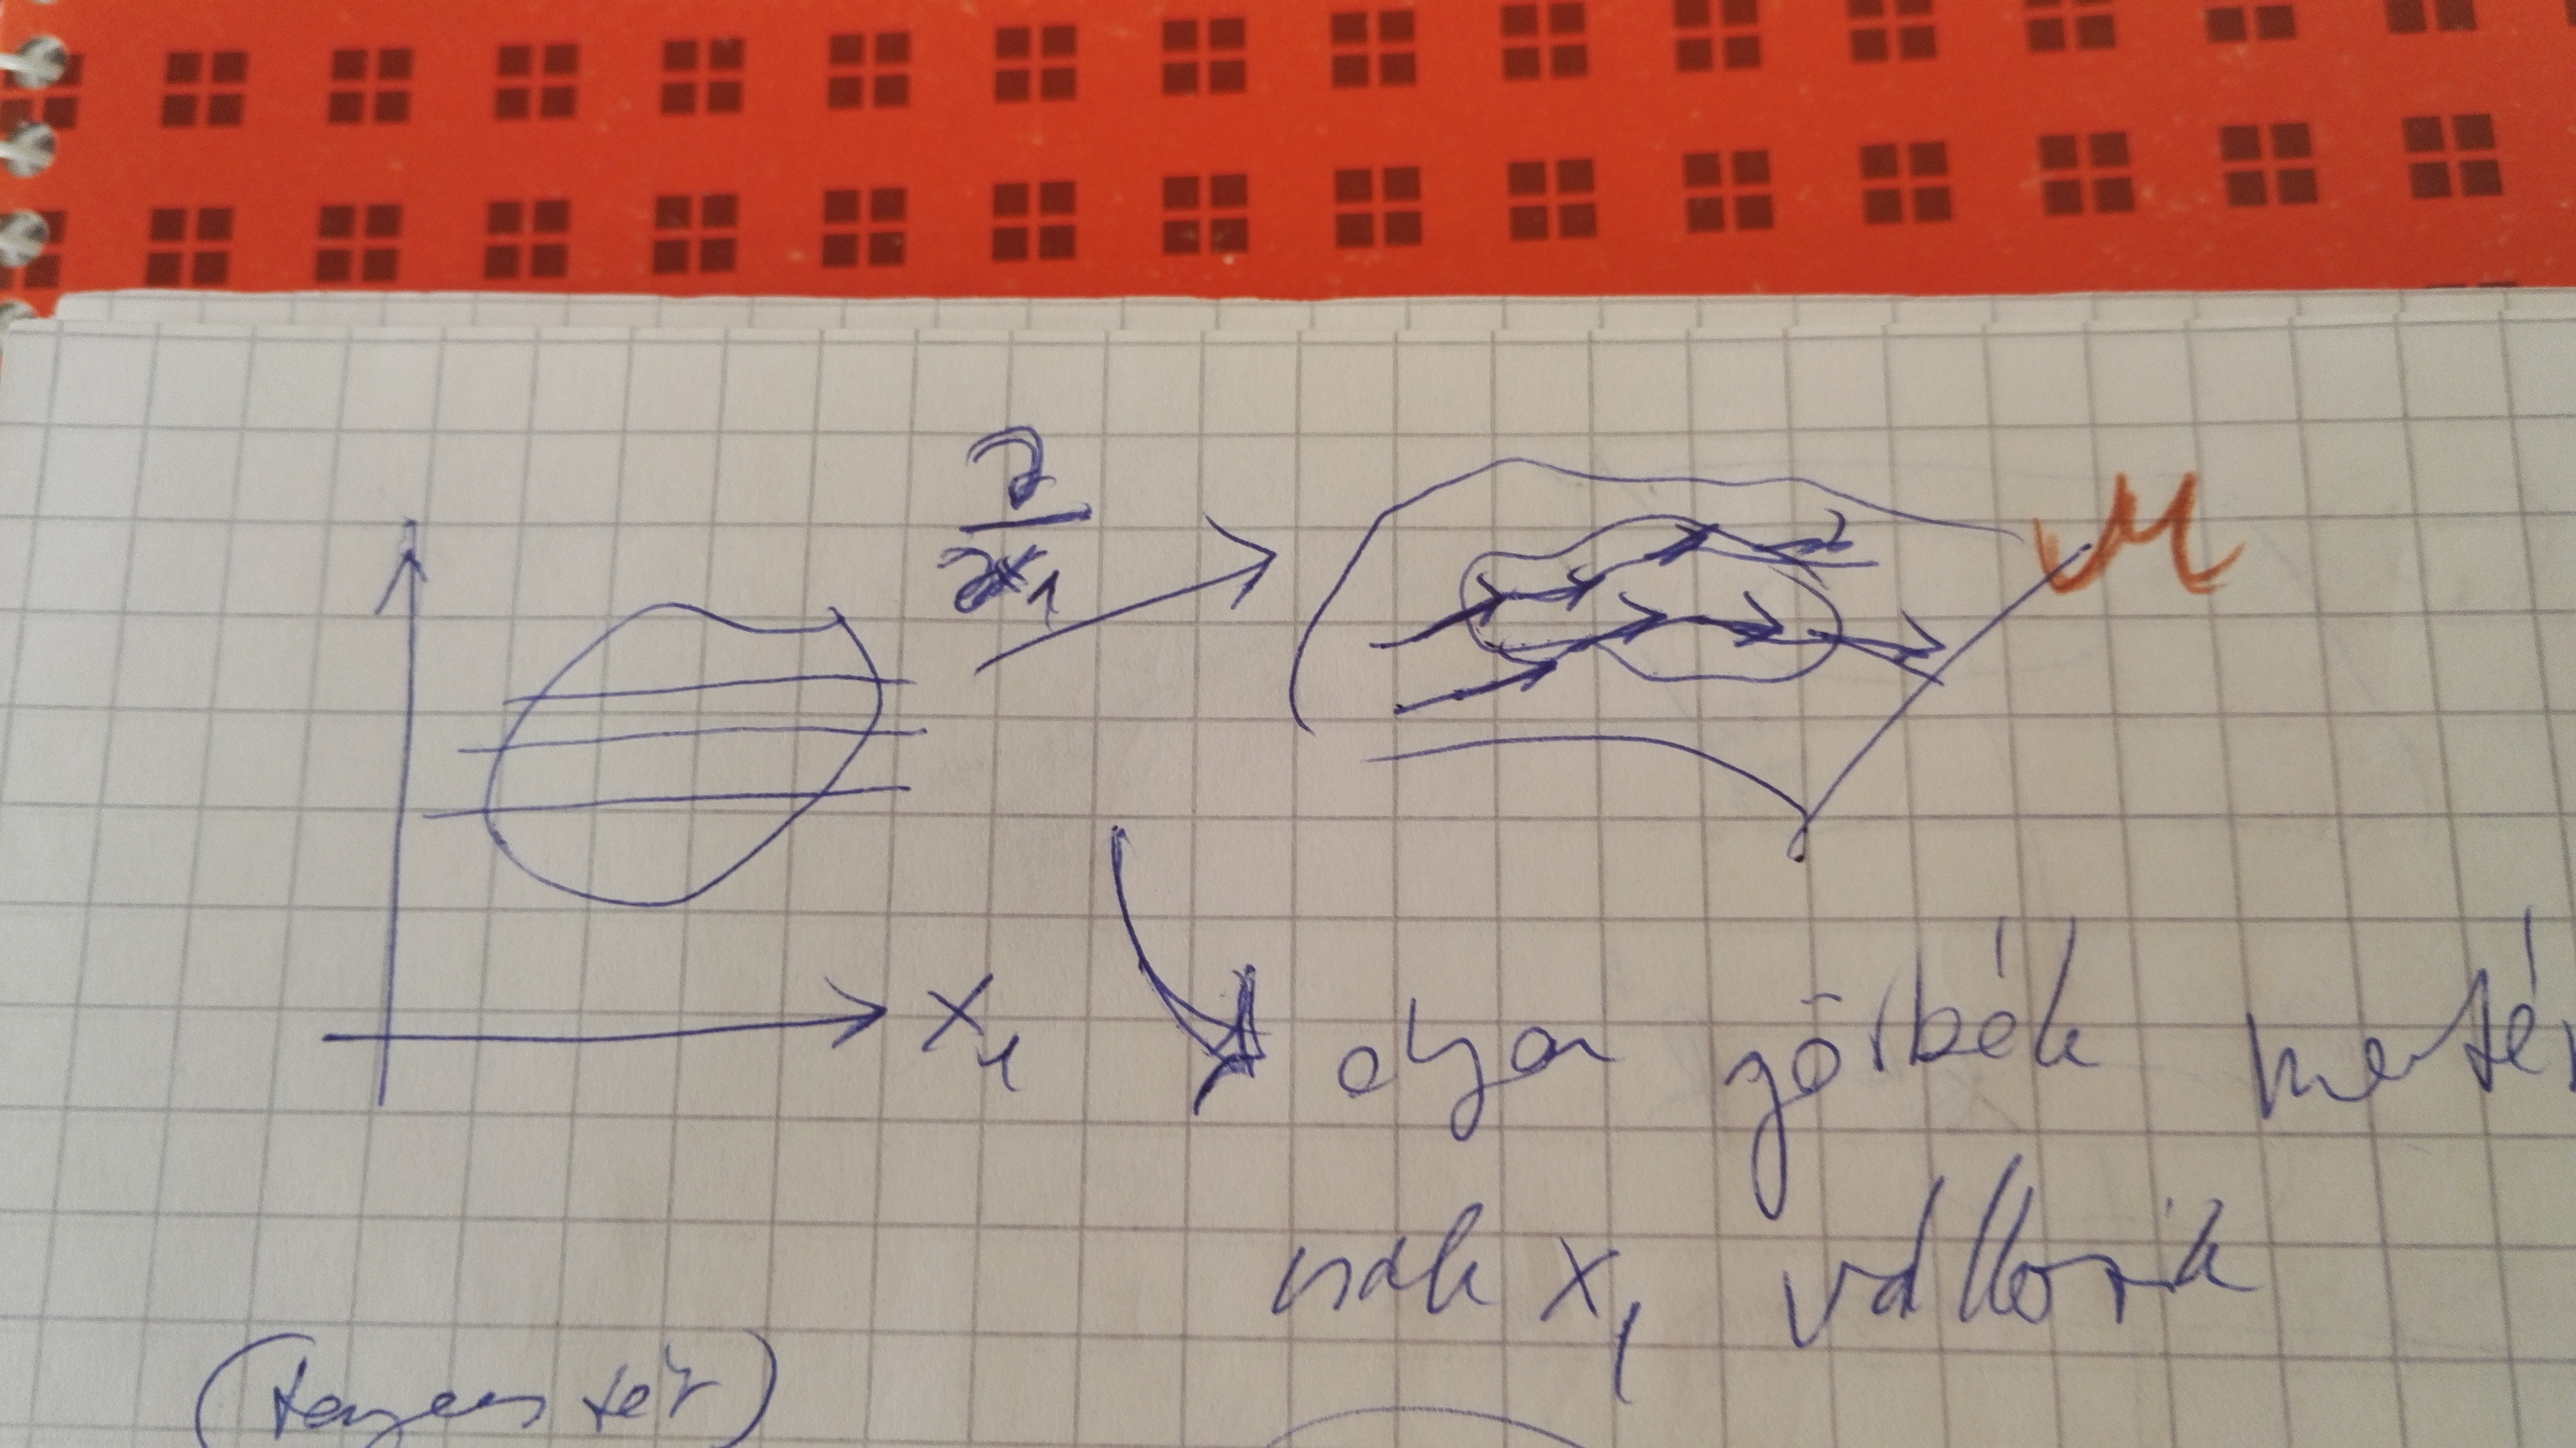 ∂
∂x₁
M
x₁
olyan görbék menté
csak x₁ változik
(tangens tér)